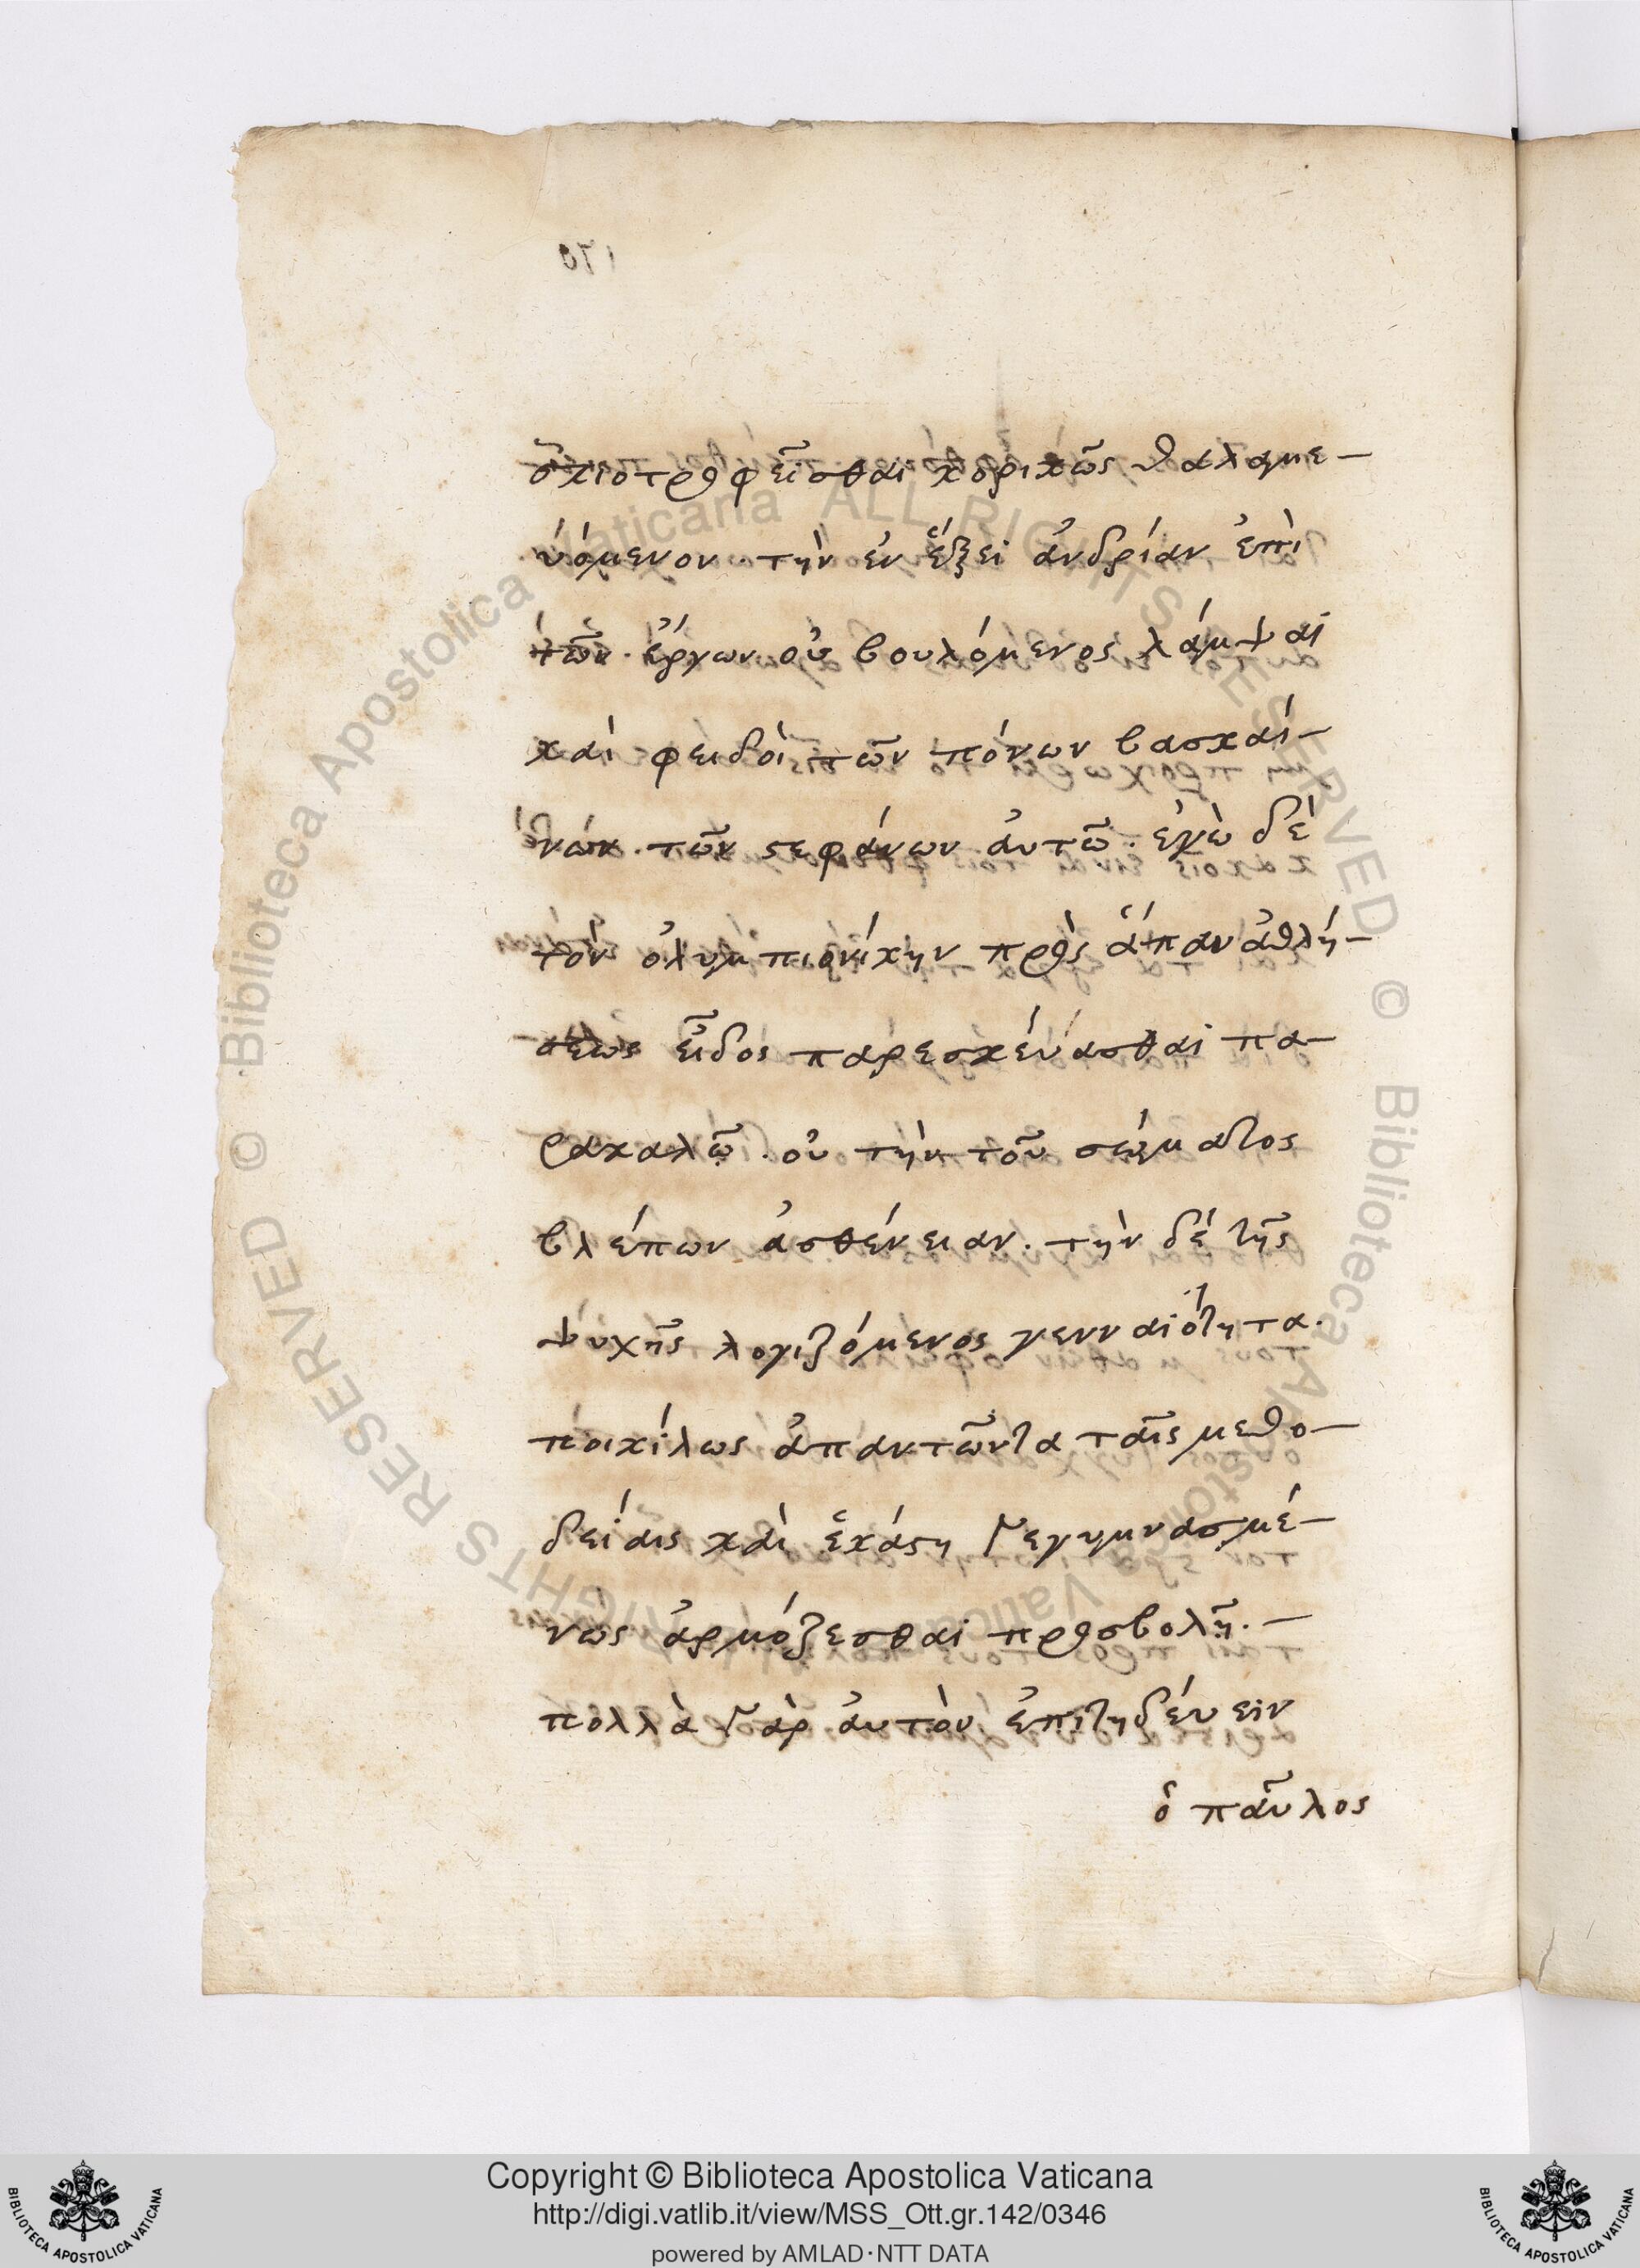 σκιοτροφεῖσθαι κορικῶς θαλαμε-
υόμενον. τὴν ἐν ἕξει ἀνδρίαν ἐπὶ
τῶν ἔργων οὐ βουλόμενος λάμψαι
καὶ φειδοῖ τῶν πόνων βασκαί-
νων τῶν στεφάνων ἀυτῶ. ἐγὼ δὲ
τὸν ὀλυμπιονίκην πρὸς ἅπαν ἀθλή-
σεως εἶδος παρεσκευάσθαι πα-
ρακαλῶ. οὐ τὴν τοῦ σώματος
βλέπων ἀσθένειαν. τὴν δὲ τῆς
ψυχῆς λογιζόμενος γενναιότητα.
ποικίλως ἀπαντῶντα ταῖς μεθο-
δείαις καὶ ἑκάστη γεγυμνασμέ-
νως ἁρμόζεσθαι προσβολῆ.-
πολλὰ γὰρ ἀυτὸν ἐπιτηδεύειν
ὁ παῦλος
Biblioteca Apostolica Vaticana ALL RIGHTS RESERVED ©
Biblioteca Apostolica Vaticana ALL RIGHTS RESERVED ©
Copyright © Biblioteca Apostolica Vaticana
http://digi.vatlib.it/view/MSS_Ott.gr.142/0346
powered by AMLAD·NTT DATA
BIBLIOTECA APOSTOLICA VATICANA
BIBLIOTECA APOSTOLICA VATICANA